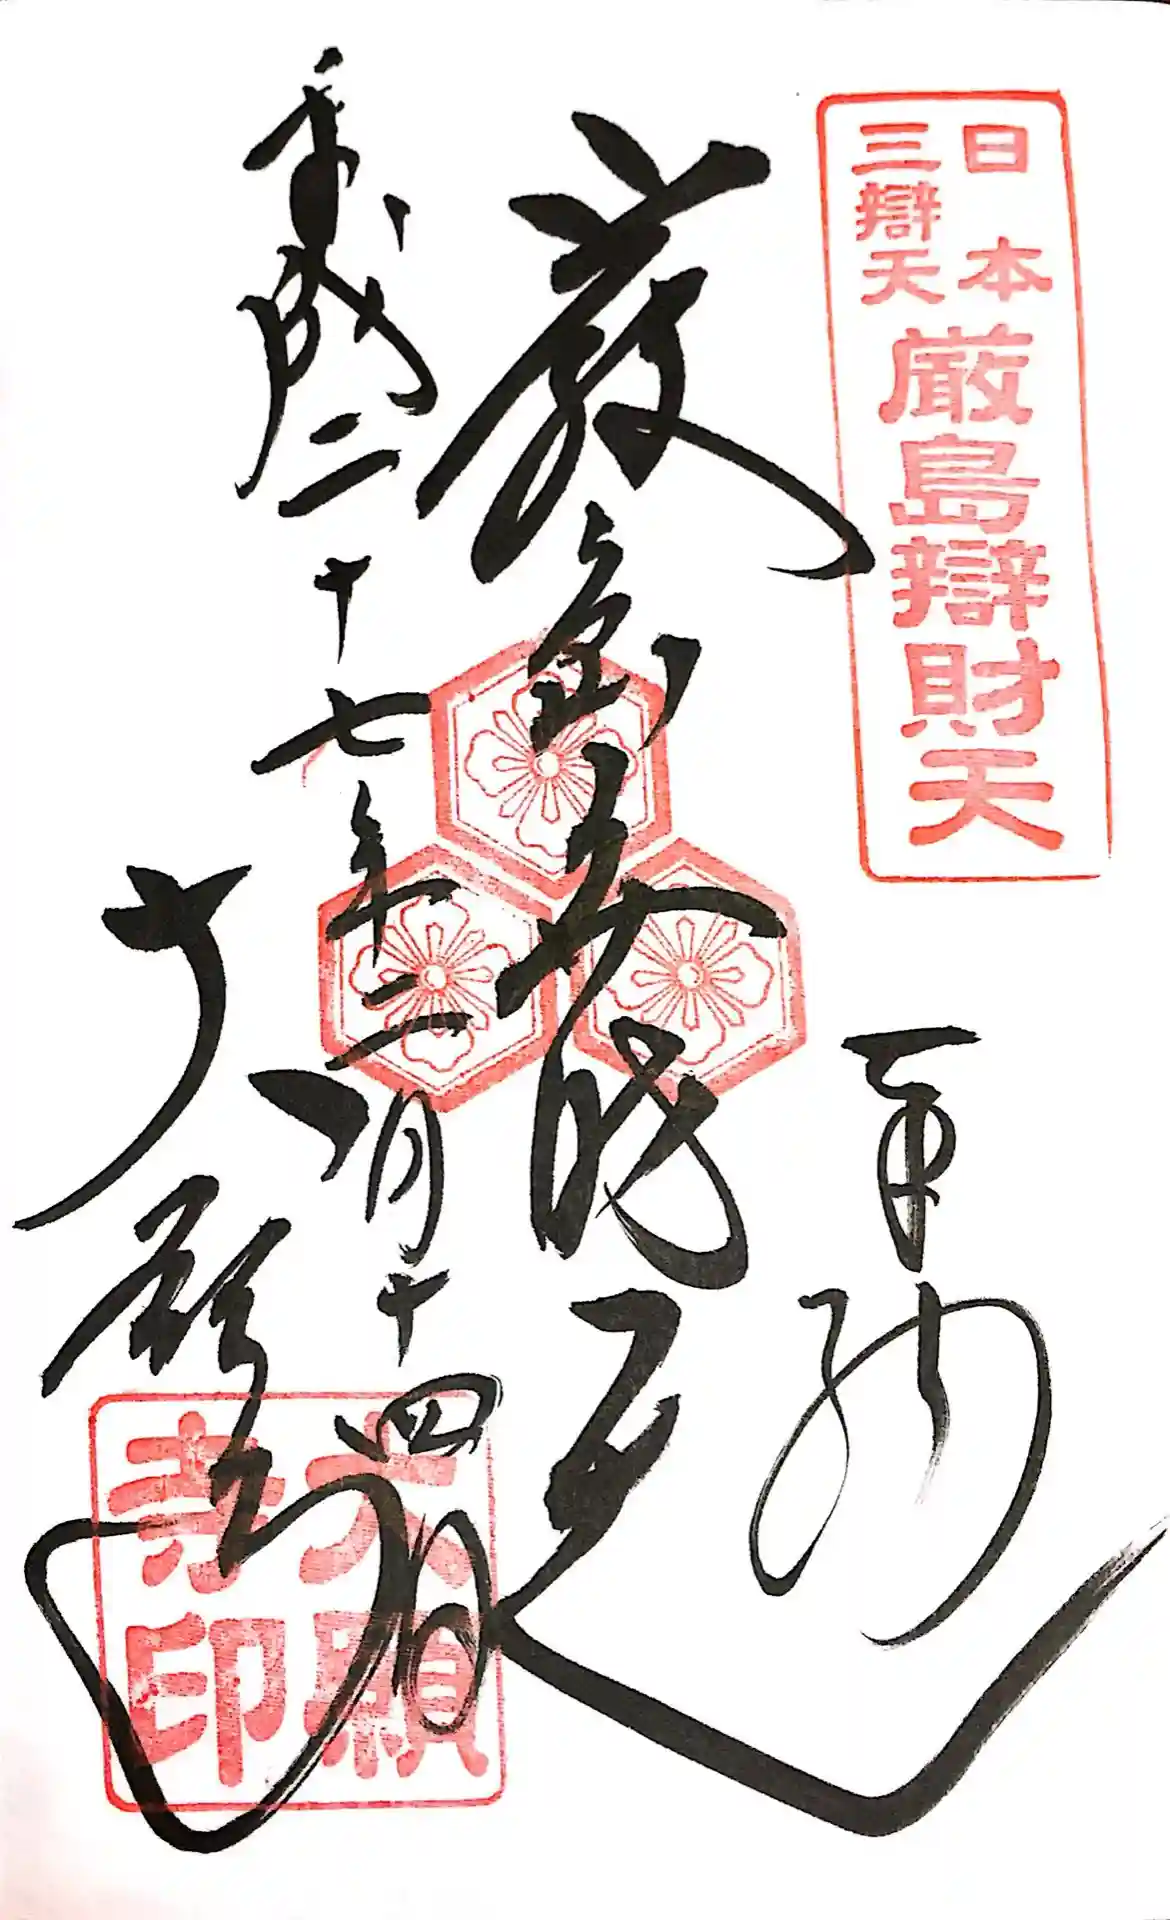 日本
三辯天
厳島辯財天
奉拝
厳島弁財天
平成二十七年二月十四日
大願寺
大願寺印